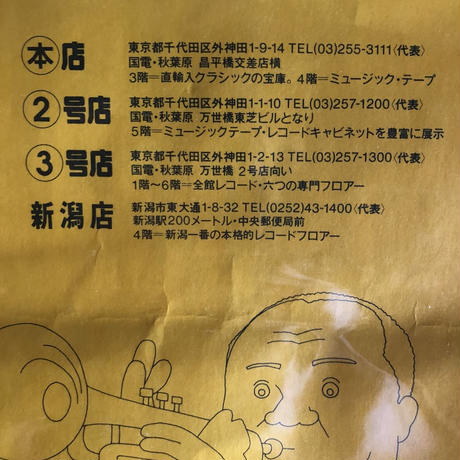 本店
東京都千代田区外神田1-9-14 TEL(03)255-3111〈代表〉
国電・秋葉原 昌平橋交差店横
3階=直輸入クラシックの宝庫。4階=ミュージック・テープ
2号店
東京都千代田区外神田1-1-10 TEL(03)257-1200〈代表〉
国電・秋葉原 万世橋東芝ビルとなり
5階=ミュージックテープ・レコードキャビネットを豊富に展示
3号店
東京都千代田区外神田1-2-13 TEL(03)257-1300〈代表〉
国電・秋葉原 万世橋 2号店向い
1階〜6階=全館レコード・六つの専門フロアー
新潟店
新潟市東大通1-8-32 TEL(0252)43-1400〈代表〉
新潟駅200メートル・中央郵便局前
4階=新潟一番の本格的レコードフロアー